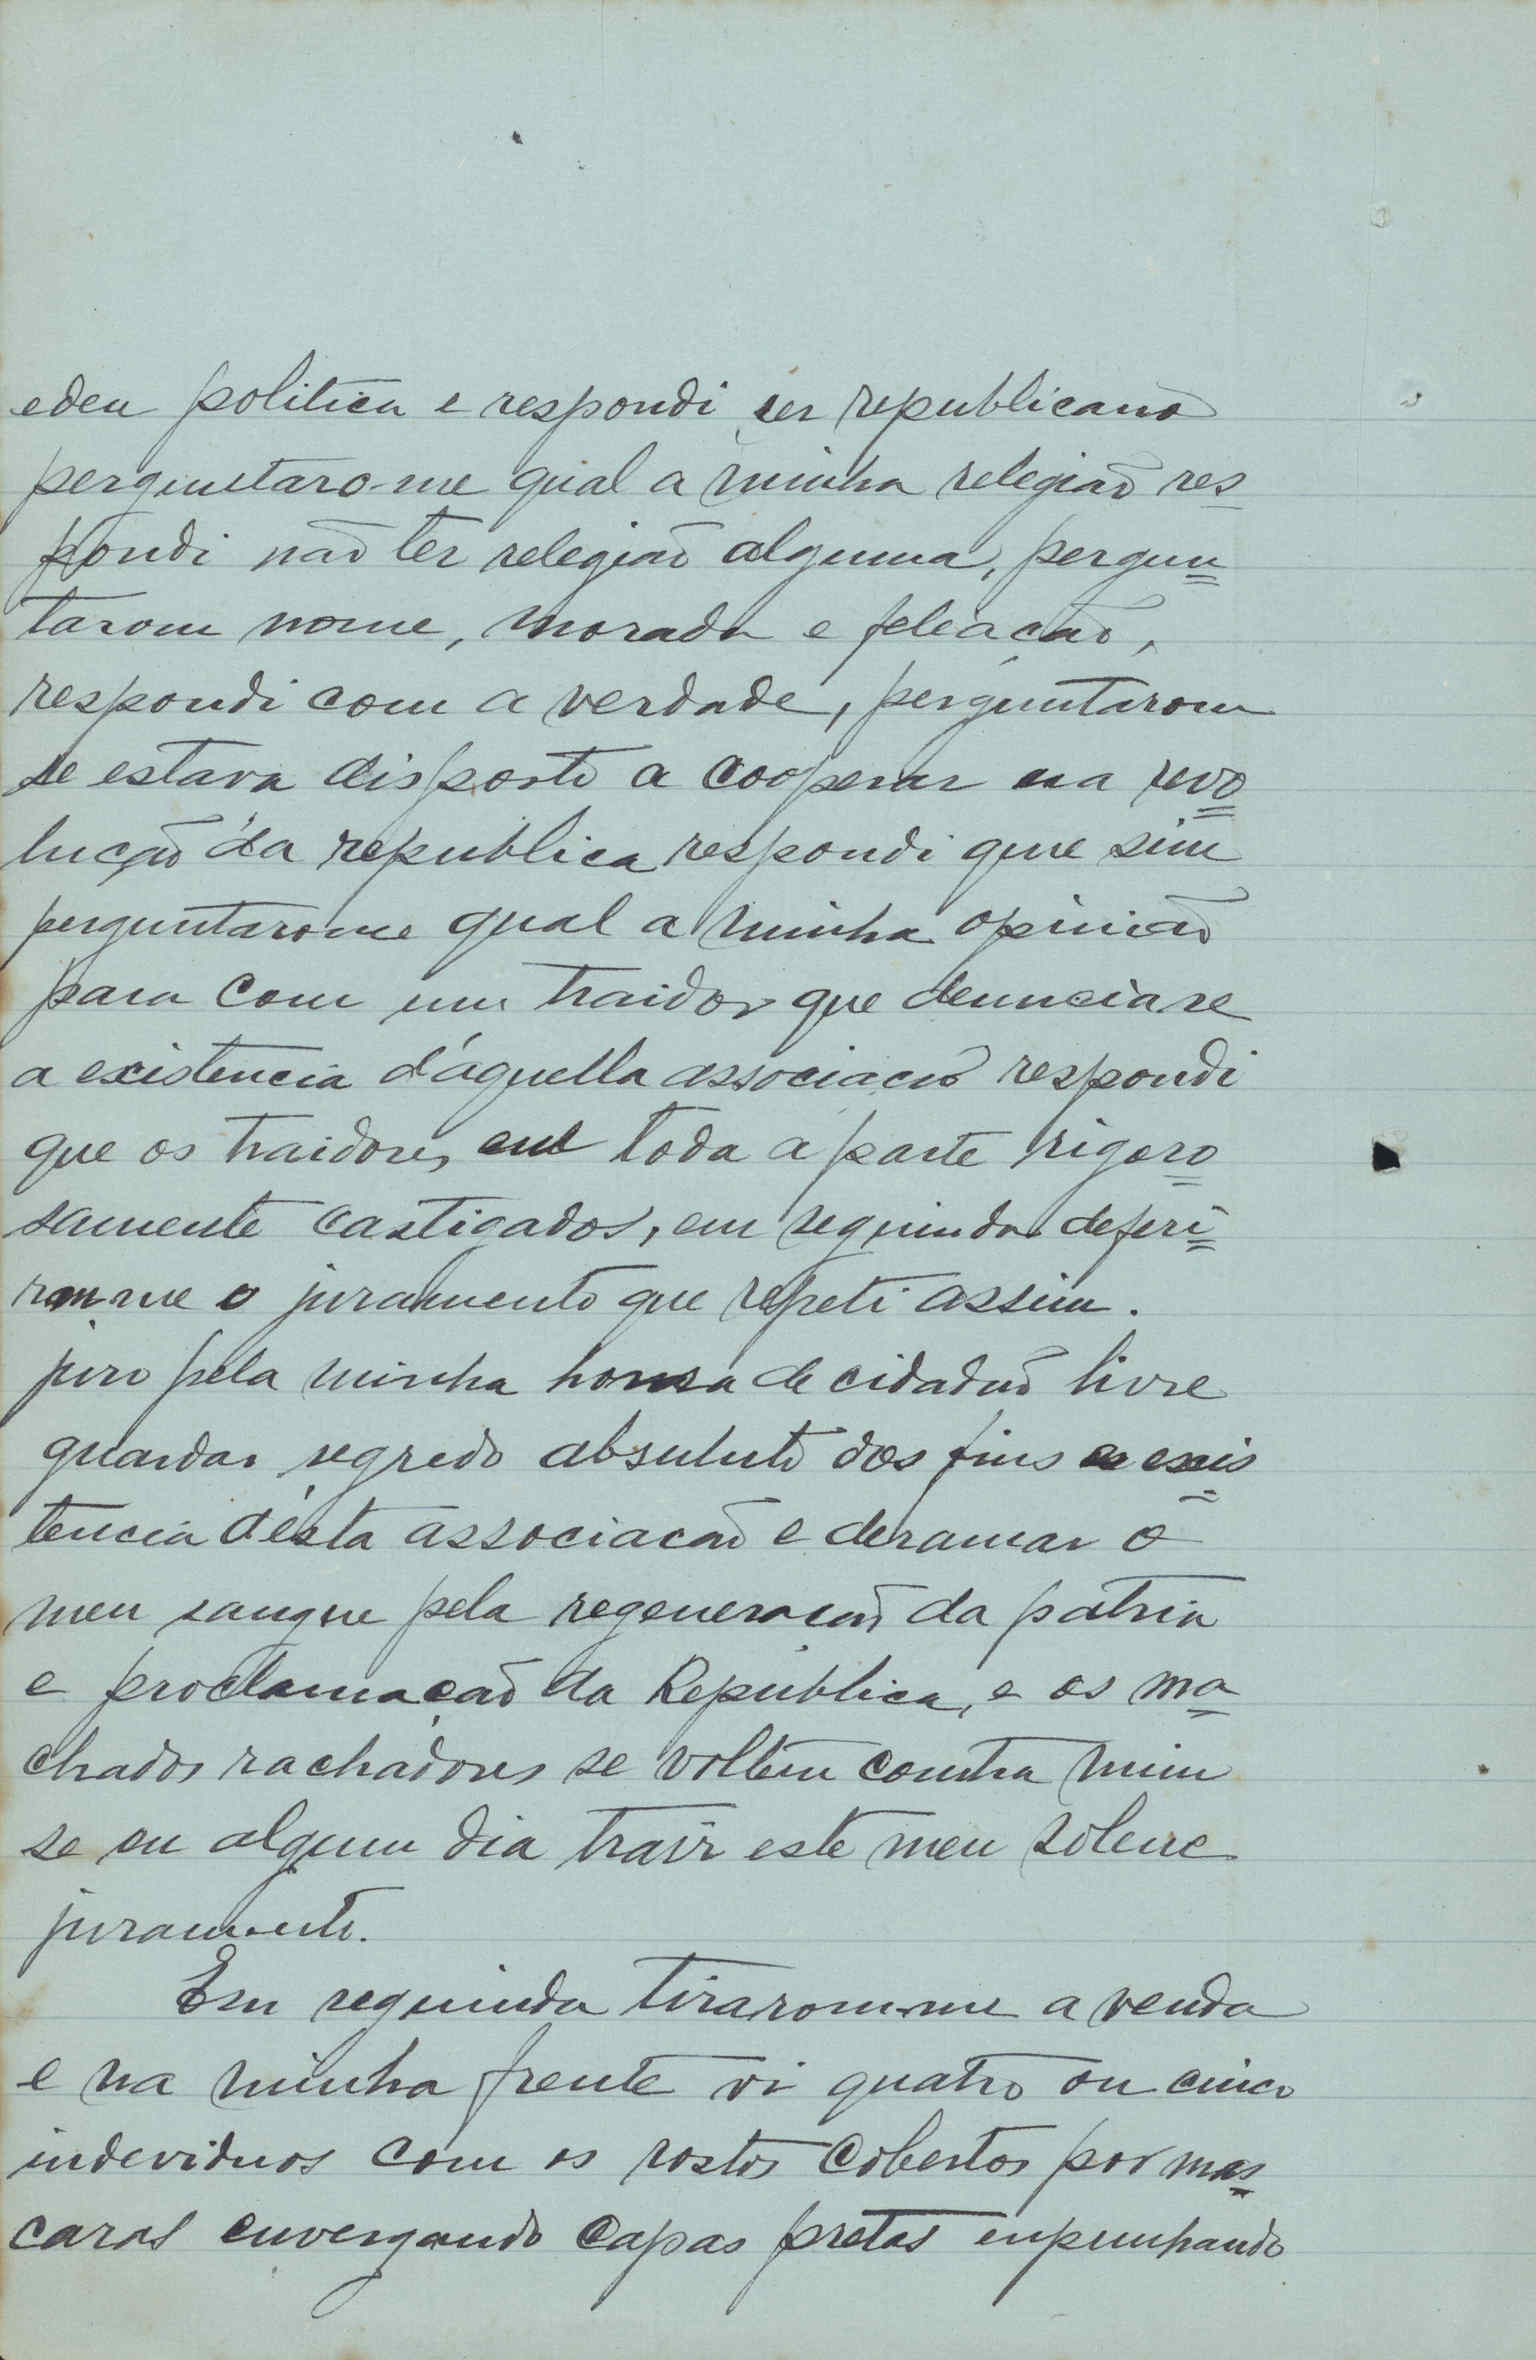 edea politica e respondi ser republicano
perguntaro-me qual a minha relegião res=
pondi não ter relegião alguma, pergun=
tarom nome, morada e feleação,
respondi com a verdade, perguntarom
se estava disposto a cooperar na revo=
lução da republica respondi que sim
perguntarome qual a minha opinião
para com um traidor que denunciase
a existencia d'aquella associação respondi
que os traidores em toda a parte rigoro=
samente castigados, em seguinda deferi=
rom-me o juramento que repeti assim.
juro pela minha honra de cidadão livre
guardar segredo absuluto dos fins e exis=
tencia d'esta associacão e deramar o
meu sangue pela regeneracão da patria
e proclamação da Republica, e os ma=
chados rachadores se voltem contra mim
se eu algum dia trair este meu solene
juramento.
Em seguinda tirarom-me a venda
e na minha frente vi quatro ou cinco
indeviduos com os rostos cobertos por mas=
caras envergando capas pretas enpunhando